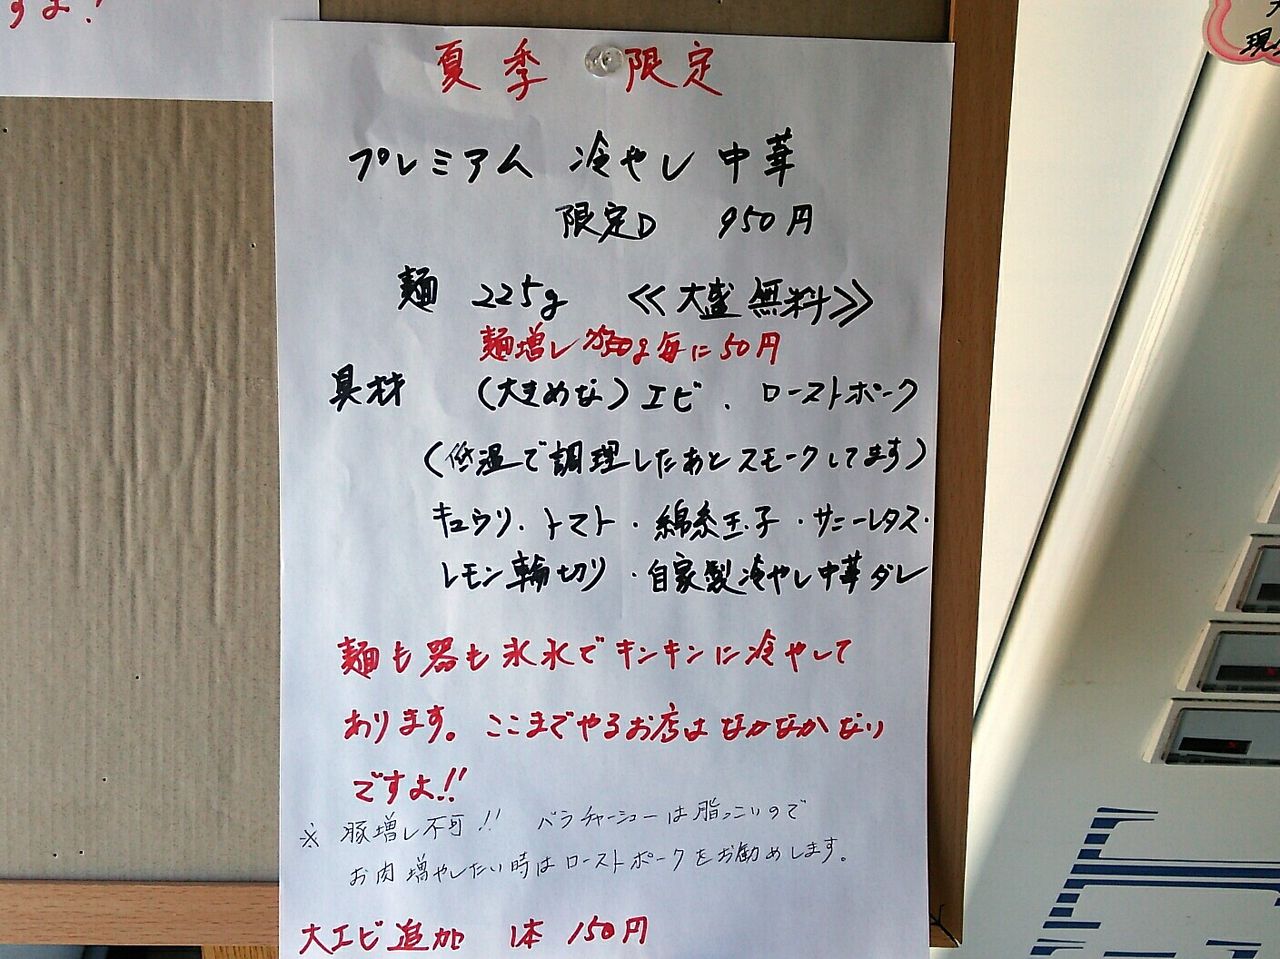 すよ!
夏季 限定
プレミアム 冷やし中華
限定D 950円
麺 225g 《大盛無料》
麺増し g毎に50円
具材 (大きめな)エビ、ローストポーク
(低温で調理したあとスモークしてます)
キュウリ・トマト・綿糸玉子・サニーレタス・
レモン輪切り・自家製冷やし中華ダレ
麺も器も氷水でキンキンに冷やして
あります。ここまでやるお店はなかなかない
ですよ!!
※豚増し不可!! バラチャーシューは脂っこいので
お肉増やしたい時はローストポークをお勧めします。
大エビ追加 1本 150円